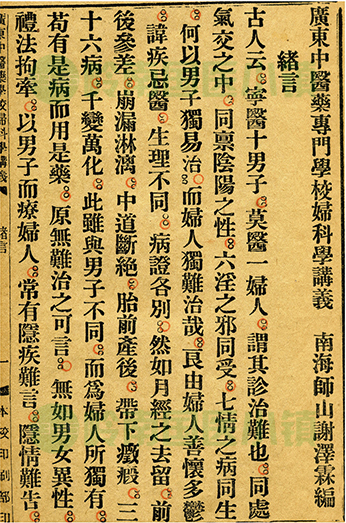 廣東中醫藥專門學校婦科學講義　南海師山謝澤霖編
緒言
古人云。寧醫十男子。莫醫一婦人。謂其診治難也。同處
氣交之中。同禀陰陽之性。六淫之邪同受。七情之病同生。
何以男子獨易治。而婦人獨難治哉。良由婦人善懷多鬱。
諱疾忌醫。生理不同。病證各別。然如月經之去留。前
後參差。崩漏淋漓。中道斷絕。胎前產後。帶下癥瘕。三
十六病。千變萬化。此雖與男子不同。而爲婦人所獨有。
苟有是病而用是藥。原無難治之可言。無如男女異性。
禮法拘牽。以男子而療婦人。常有隱疾難言。隱情難告。
廣東中醫藥學校婦科學講義 緒言 一 本校印刷部印